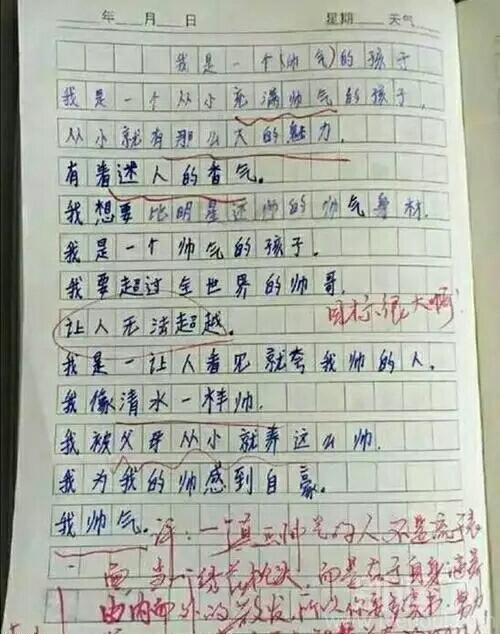 年 月 日 星期 天气
我是一个(帅气)的孩子
我是一个从小充满帅气的孩子,
从小就有那么大的魅力,
有着迷人的香气。
我想要比明星还帅的帅气身材,
我是一个帅气的孩子。
我要超过全世界的帅哥,
让人无法超越。
目标很大啊!
我是一让人看见就夸我帅的人,
我像清水一样帅,
我被父母从小就养这么帅,
我为我的帅感到自豪。
我帅气。
评:一个真正帅气的人不是流于表
面,当一绣花枕头,而是在于自身
由内而外的散发,所以你要多读书,努力